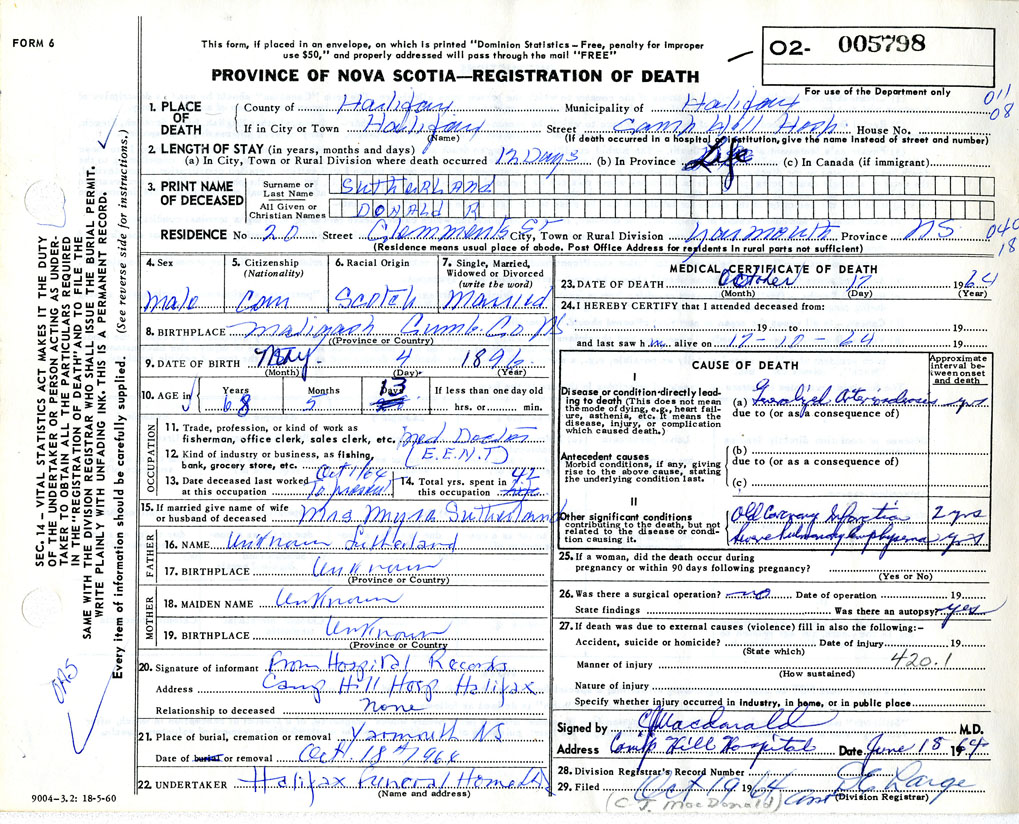 FORM 6
This form, if placed in an envelope, on which is printed "Dominion Statistics – Free, penalty for improper
use $50," and properly addressed will pass through the mail "FREE"
PROVINCE OF NOVA SCOTIA—REGISTRATION OF DEATH
02- 005798
For use of the Department only
011
08
1. PLACE OF DEATH County of Halifax Municipality of Halifax
If in City or Town Halifax Street Camp Hill Hosp. House No.
(Name) (If death occurred in a hospital or institution, give the name instead of street and number)
2. LENGTH OF STAY (in years, months and days)
(a) In City, Town or Rural Division where death occurred 12 Days (b) In Province Life (c) In Canada (if immigrant)
3. PRINT NAME OF DECEASED Surname or Last Name SUTHERLAND
All Given or Christian Names DONALD R
RESIDENCE No 20 Street Clemments St City, Town or Rural Division Yarmouth Province NS
040
18
(Residence means usual place of abode. Post Office Address for residents in rural parts not sufficient)
4. Sex 5. Citizenship (Nationality) 6. Racial Origin 7. Single, Married, Widowed or Divorced (write the word)
Male Can Scotch Married
8. BIRTHPLACE Maligash Cumb. Co. NS
(Province or Country)
9. DATE OF BIRTH May 4 1896
(Month) (Day) (Year)
10. AGE in Years Months Days If less than one day old
68 5 13 hrs. or min.
OCCUPATION
11. Trade, profession, or kind of work as
fisherman, office clerk, sales clerk, etc. Med Doctor
12. Kind of industry or business, as fishing,
bank, grocery store, etc. (E.E.N.T)
13. Date deceased last worked at this occupation Oct 1/64 To present
14. Total yrs. spent in this occupation 42 life
15. If married give name of wife
or husband of deceased Mrs Myra Sutherland
FATHER
16. NAME Unknown Sutherland
17. BIRTHPLACE Unknown
(Province or Country)
MOTHER
18. MAIDEN NAME Unknown
19. BIRTHPLACE Unknown
(Province or Country)
20. Signature of informant From Hospital Records
Address Camp Hill Hosp Halifax
Relationship to deceased none
21. Place of burial, cremation or removal Yarmouth NS
Date of burial or removal Oct. 18th 1964
22. UNDERTAKER Halifax Funeral Home Ltd
(Name and address)
MEDICAL CERTIFICATE OF DEATH
23. DATE OF DEATH October 17 1964
(Month) (Day) (Year)
24. I HEREBY CERTIFY that I attended deceased from:
19 to 19
and last saw him alive on 17-10-64 19
CAUSE OF DEATH
Approximate interval between onset and death
I
Disease or condition directly leading to death (This does not mean the mode of dying, e.g., heart failure, asthenia, etc. It means the disease, injury, or complication which caused death.)
(a) yrs
due to (or as a consequence of)
Antecedent causes
Morbid conditions, if any, giving rise to the above cause, stating the underlying condition last.
(b)
due to (or as a consequence of)
(c)
II
Other significant conditions
contributing to the death, but not related to the disease or condition causing it.
Old Coronary Infarction 2 yrs
Severe Pulmonary Emphysema yrs
25. If a woman, did the death occur during
pregnancy or within 90 days following pregnancy?
(Yes or No)
26. Was there a surgical operation? no Date of operation 19
State findings Was there an autopsy? yes
27. If death was due to external causes (violence) fill in also the following:–
Accident, suicide or homicide? Date of injury 19
(State which)
Manner of injury 420.1
(How sustained)
Nature of injury
Specify whether injury occurred in industry, in home, or in public place
Signed by CJ Macdonald M.D.
Address Camp Hill Hospital Date June 18 1964
28. Division Registrar's Record Number
29. Filed Oct 19 1964 Large
(C. J. MacDonald) (Division Registrar)
SEC. 14—VITAL STATISTICS ACT MAKES IT THE DUTY
OF THE UNDERTAKER OR PERSON ACTING AS UNDER-
TAKER TO OBTAIN ALL THE PARTICULARS REQUIRED
IN THE "REGISTRATION OF DEATH" AND TO FILE THE
SAME WITH THE DIVISION REGISTRAR WHO SHALL ISSUE THE BURIAL PERMIT.
WRITE PLAINLY WITH UNFADING INK. THIS IS A PERMANENT RECORD.
Every item of information should be carefully supplied. (See reverse side for instructions.)
9004–3.2: 18-5-60